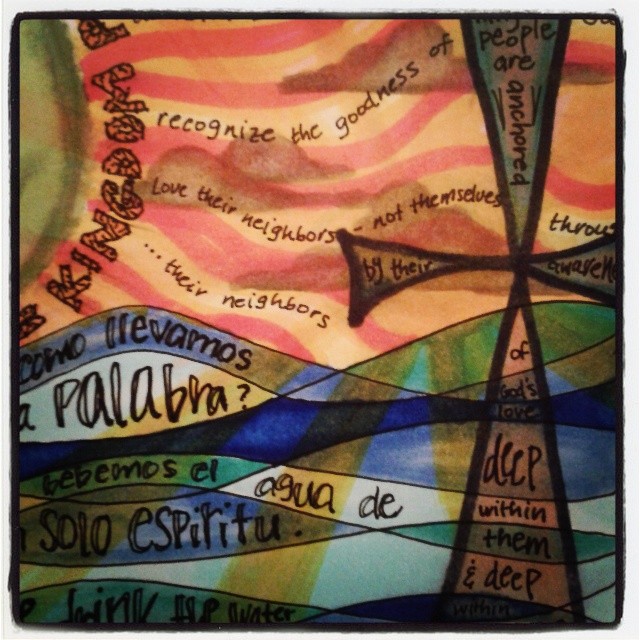 KINGDOM
recognize the goodness of
Love their neighbors - not themselves
... their neighbors
people
are
anchored
by their
of
God's
love
deep
within
them
& deep
within
como llevamos
a Palabra?
bebemos el
agua de
solo espiritu.
drink the water